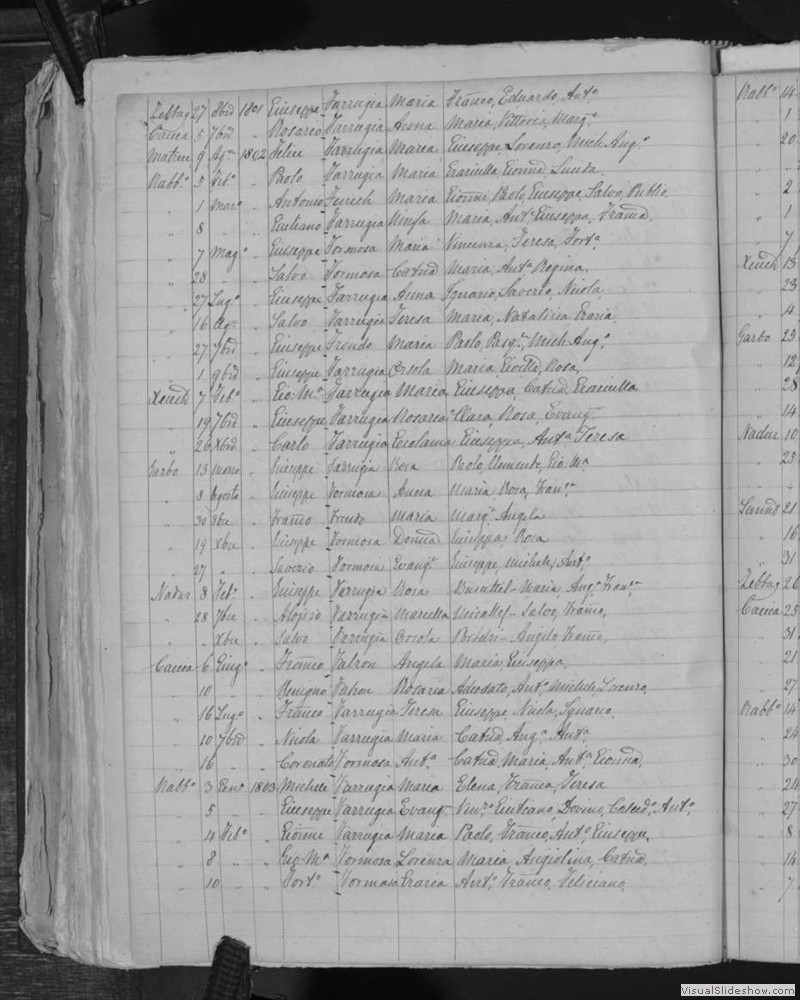 Zebbug 27 8brē 1801 Giuseppe Farrugia Maria Franco, Eduardo, Ant.º
Caccia 5 7brē " Rosario Farrugia Anna Maria, Vittoria, Marg.ª
Matrice 9 Ag.º 1802 Felice Farrugia Maria Giuseppe, Lorenzo, Mich Ang.º
Rabb.º 5 Feb.º " Paolo Farrugia Maria Graziulla,
" 1 Mar.º " Antonio Maria Paolo, Giuseppe, Salvo, Publio,
" 8 " " Giuliano Farrugia Maria, Ant.ª Giuseppa,
" 7 Mag.º " Giuseppe Formosa Maria Vincenza, Teresa, Fort.ª
" 28 " " Salvo Formosa Catnā Maria, Ant.ª Regina,
" 27 Lug.º " Giuseppe Farrugia Anna Ignazio, Saverio, Nicola,
" 16 Ag.º " Salvo Farrugia Teresa Maria, Natalizia Grazia,
" 27 7brē " Giuseppe Frendo Maria Paolo, Pasq.le, Mich Ang.º
" 1 9brē " Giuseppe Farrugia Orsola Maria Rosa,
Xeuch 7 Feb.º " Gio: M.ª Farrugia Maria Giuseppa, Catnā, Graziulla
" 19 7brē " Giuseppe Farrugia Rosaria Clara, Rosa, Evang.
" 26 Xbrē " Carlo Farrugia Giuseppa, Ant.ª Teresa
Garbo 13 Marzo " Giuseppe Farrugia Rosa Paolo, Clemente, Gio M.ª
" 8 Agosto " Giuseppe Formosa Anna Maria, Rosa, Fran.ca
" 30 8bre " Franco Frendo Maria Marg.ª Angela
" 19 Xbre " Giuseppe Formosa Giuseppa, Rosa
" 27 " " Saverio Formosa Evang.ª Giuseppe, Michele, Ant.º
Nadur 8 Feb.º " Giuseppe Farrugia Rosa Busuttil - Maria, Ang.ª Fran.ca
" 28 7bre " Aloisio Farrugia Marcella Micallef - Salvo, Franco,
" " Xbre " Salvo Farrugia Orsola Angelo Franco,
Caccia 6 Giug.º " Franco Fatron Angela Maria, Giuseppa,
" 10 " Benigno Rosaria Adeodato, Ant.º Michele Lorenzo,
" 16 Lug.º " Franco Farrugia Teresa Giuseppe, Nicola, Ignazio,
" 10 7brē " Nicola Farrugia Maria Catnā, Ang.ª Ant.ª
" 16 " " Coronato Formosa Ant.ª Catnā, Maria, Ant.ª
Rabb.º 3 Gen.º 1803 Michele Farrugia Maria Elena, Franca, Teresa
" 5 " " Giuseppe Farrugia Evang. Vinc.º Giuliano, Ant.º
" 4 Feb.º " Farrugia Maria Paolo, Franco, Ant.º, Giuseppe,
" 8 " " Gio M.ª Formosa Lorenza Maria Angiolina, Catnā,
" 10 " " Fort.º Formosa Grazia Ant.º, Franco, Feliciano,
Rabb.º 14
" 1
" 20
" "
" 2
" 1
" 7
Xeuch 13
" 23
" 4
Garbo 23
" 12
" 28
" 14
Nadur 10
" 25
"
21
" 16
" 31
Zebbug 26
Caccia 23
" 31
" 21
" 27
Rabb.º 14
" 24
" 30
" 24
" 27
" 8
" 14
" 7
VisualSlideshow.com